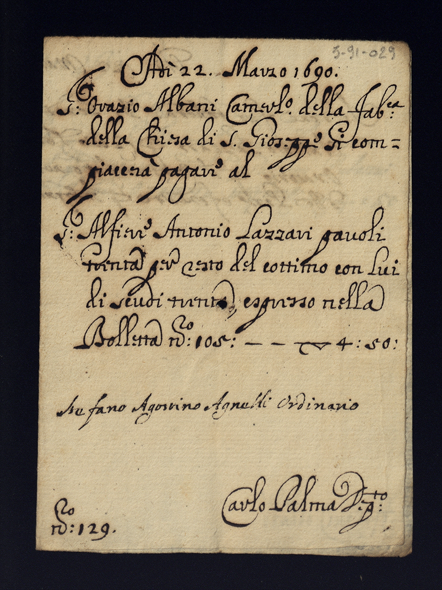 5-91-029
Adì 22. Marzo 1690.
S: Orazio Albani Camerlo. della Fabca:
della Chiesa di S. Gioseppe si com=
piacerà pagare al
S: Alfiere Antonio Lazzari pauoli
trenta per resto del cottimo con lui
di scudi trenta, espresso nella
Bolletta no: 105: — — 4: 50:
Stefano Agostino Agnelli Ordinario
Carlo Palma
no: 129.